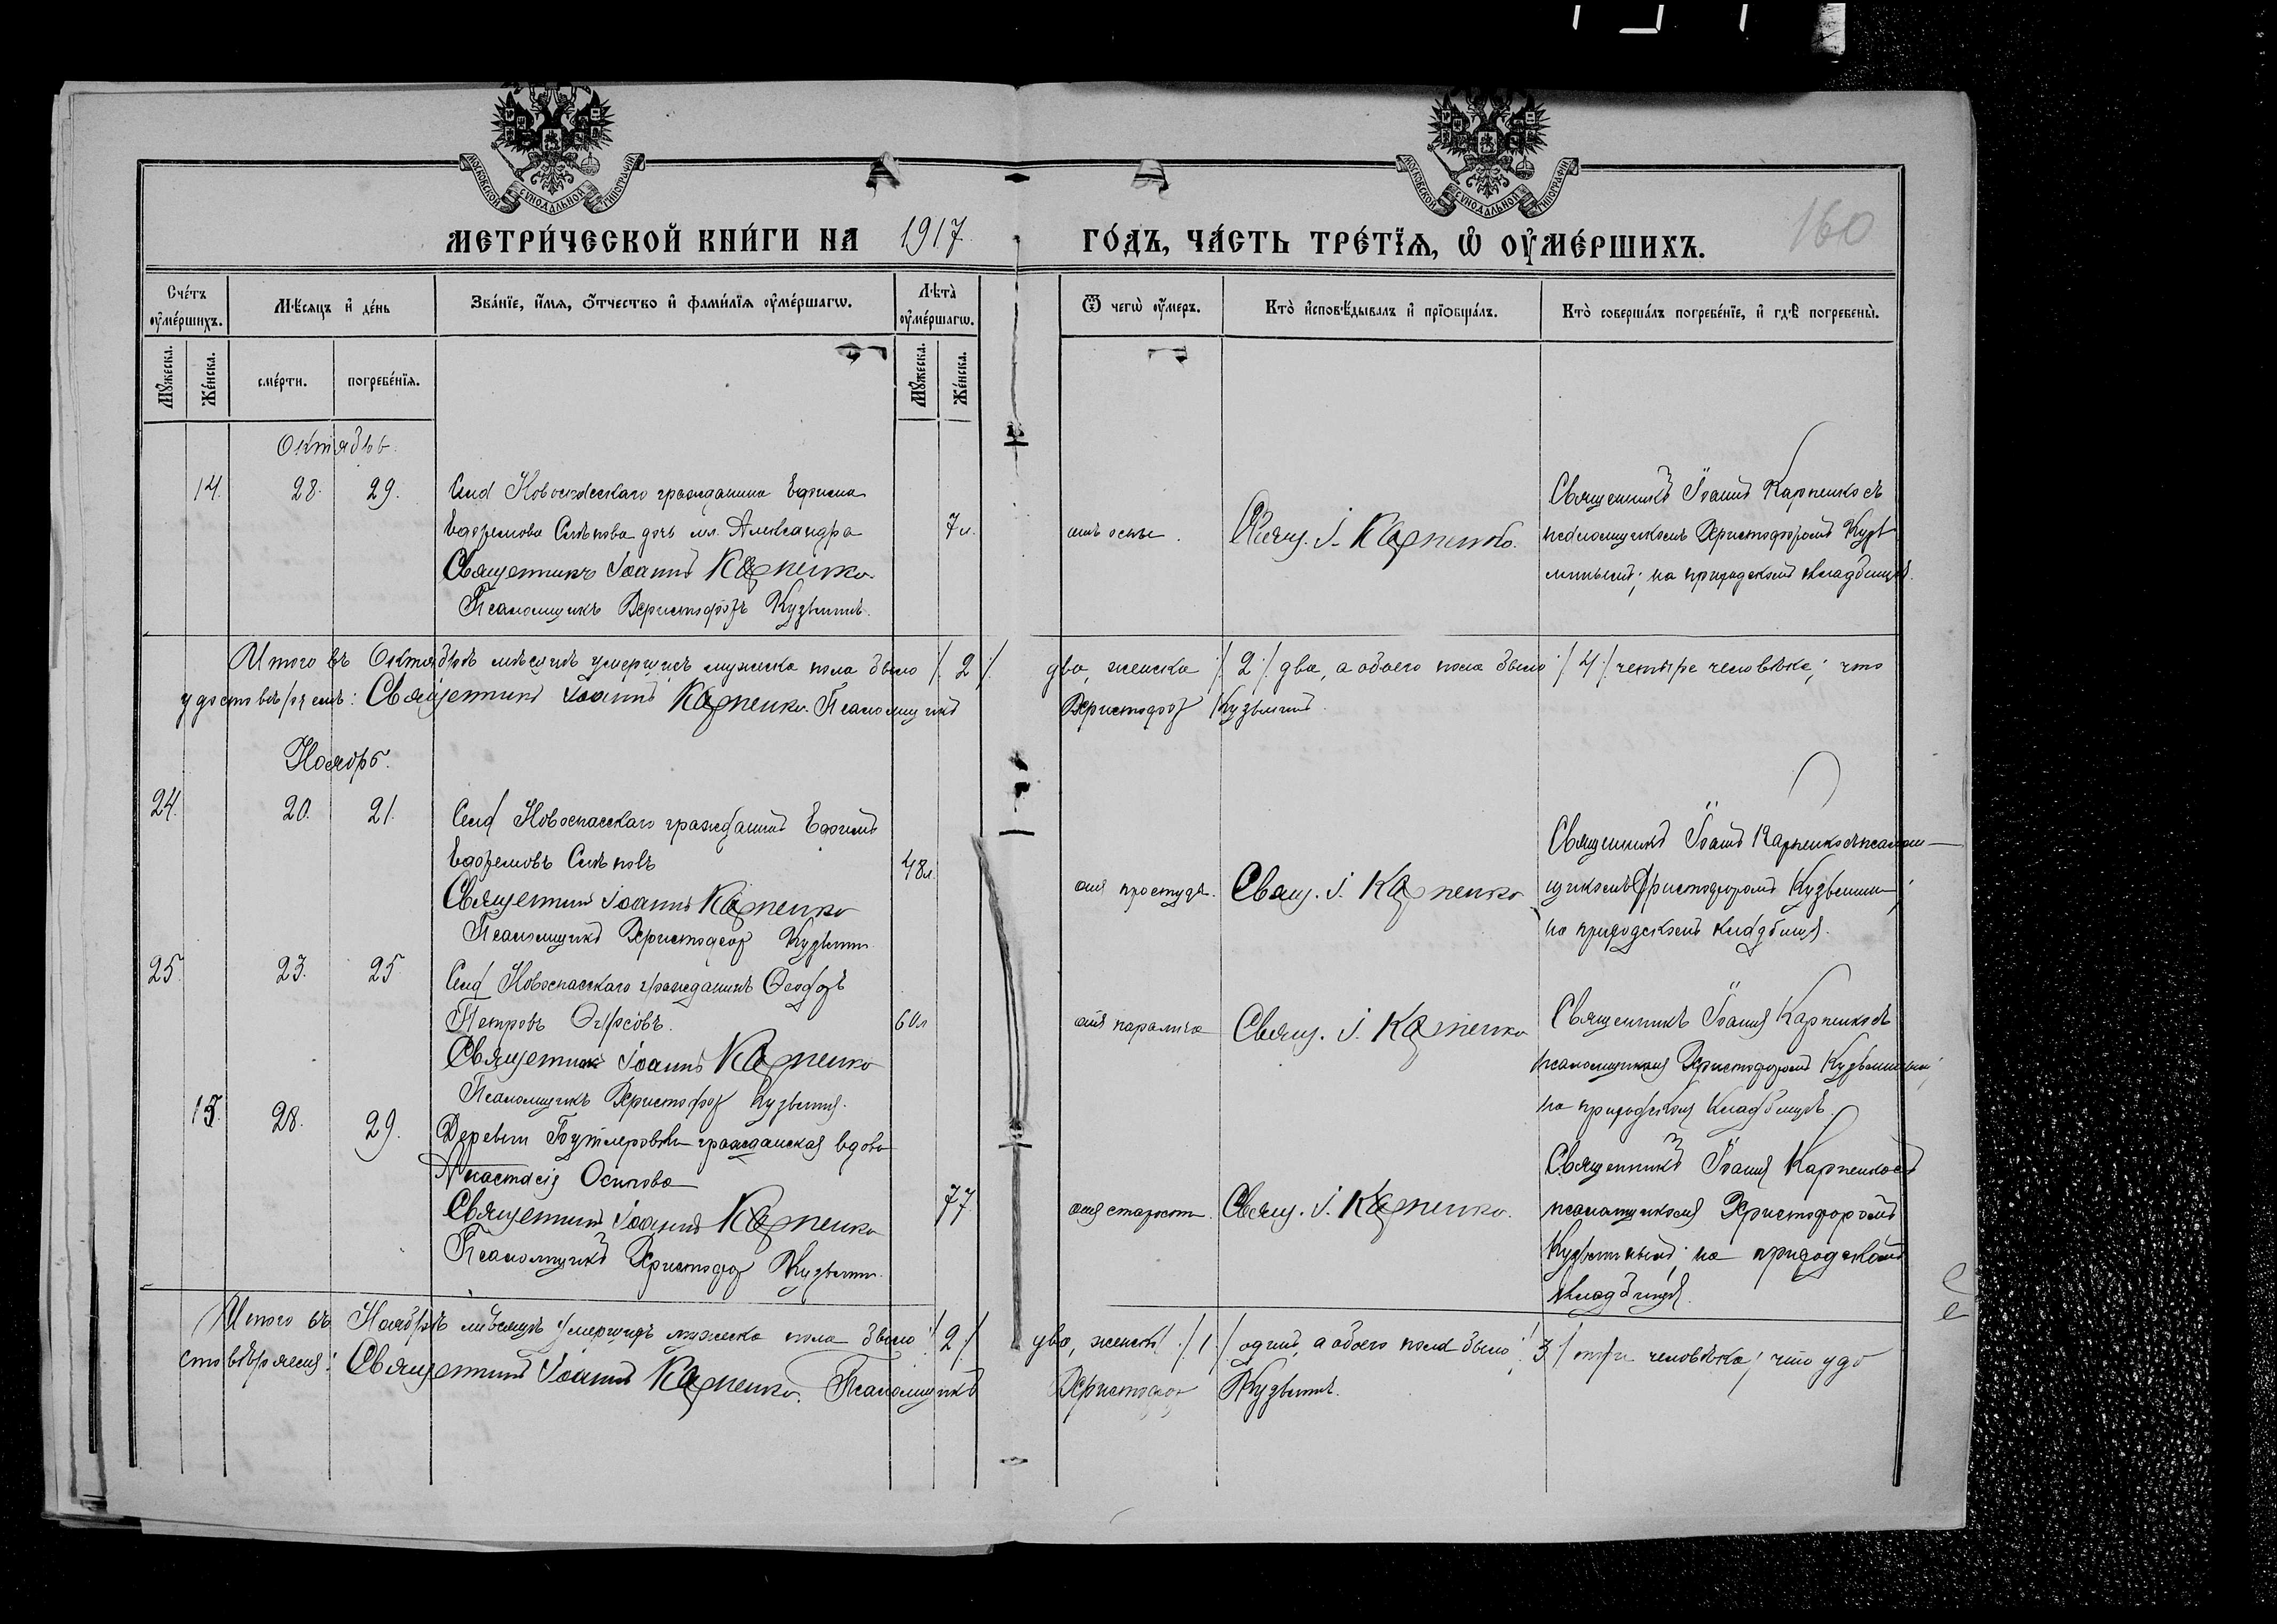 МОСКОВСКОЙ СУНОДАЛЬНОЙ ТИПОГРАФІИ
МОСКОВСКОЙ СУНОДАЛЬНОЙ ТИПОГРАФІИ
МЕТРИ́ЧЕСКОЙ КНИ́ГИ НА 1917 ГО́ДЪ, ЧА́СТЬ ТРЕ́ТЇѦ, Ѡ ОУМЕ́РШИХЪ.
160
Сче́тъ оуме́ршихъ.
Мѣ́сяцъ и де́нь
Зва́нїе, и́мя, о́тчество и фами́лїя оуме́ршагѡ.
Лѣта̀ оуме́ршагѡ.
Ѿ чегѡ̀ оу́меръ.
Кто̀ исповѣ́дывалъ и прїобща́лъ.
Кто̀ соверша́лъ погребе́нїе, и гдѣ̀ погребены̀.
Мꙋжеска. Же́нска. сме́рти. погребе́нїя. Мꙋжеска. Же́нска.
Октябрь.
14. 28. 29. Села Новоспасскаго гражданина Ефима
Ефремова Слѣпова дочь мл. Александра 7 л.
Священникъ Іоаннъ Карпенко.
Псаломщикъ Христофоръ Кузьминъ.
отъ оспы.
Свящ. І. Карпенко.
Священникъ Іоаннъ Карпенко съ
псаломщикомъ Христофоромъ Кузь
минымъ; на приходскомъ кладбищѣ.
Итого въ Октябрѣ мѣсяцѣ умершихъ мужеска пола было /. 2 /. два, женска /. 2 /. два, а обоего пола было /. 4 /. четыре человѣка; что
удостовѣряемъ: Священникъ Іоаннъ Карпенко. Псаломщикъ Христофоръ Кузьминъ.
Ноябрь.
24. 20. 21. Села Новоспасскаго гражданинъ Ефимъ
Ефремовъ Слѣповъ 48 л.
Священникъ Іоаннъ Карпенко
Псаломщикъ Христофоръ Кузьминъ
отъ простуды.
Свящ. І. Карпенко
Священникъ Іоаннъ Карпенко съ псалом-
щикомъ Христофоромъ Кузьминым;
на приходскомъ кладбищѣ.
25. 23. 25 Села Новоспасскаго гражданинъ Ѳеодоръ
Петровъ 60 л
Священникъ Іоаннъ Карпенко
Псаломщикъ Христофоръ Кузьминъ.
отъ паралича
Свящ. І. Карпенко
Священникъ Іоаннъ Карпенко съ
псаломщикомъ Христофоромъ Кузьминымъ;
на приходскомъ кладбищѣ.
15. 28. 29. Деревни Бутлеровки гражданская вдова
Анастасія Осипова 77
Священникъ Іоаннъ Карпенко
Псаломщикъ Христофоръ Кузьминъ.
отъ старости.
Свящ. І. Карпенко.
Священникъ Іоаннъ Карпенко съ
псаломщикомъ Христофоромъ
Кузьминымъ; на приходскомъ
кладбищѣ.
Итого въ Ноябрѣ мѣсяцѣ умершихъ мужеска пола было /. 2 /. два, женска /. 1 /. одинъ, а обоего пола было /. 3 /. три человѣка; что удо
стовѣряемъ: Священникъ Іоаннъ Карпенко. Псаломщикъ Христофоръ Кузьминъ.